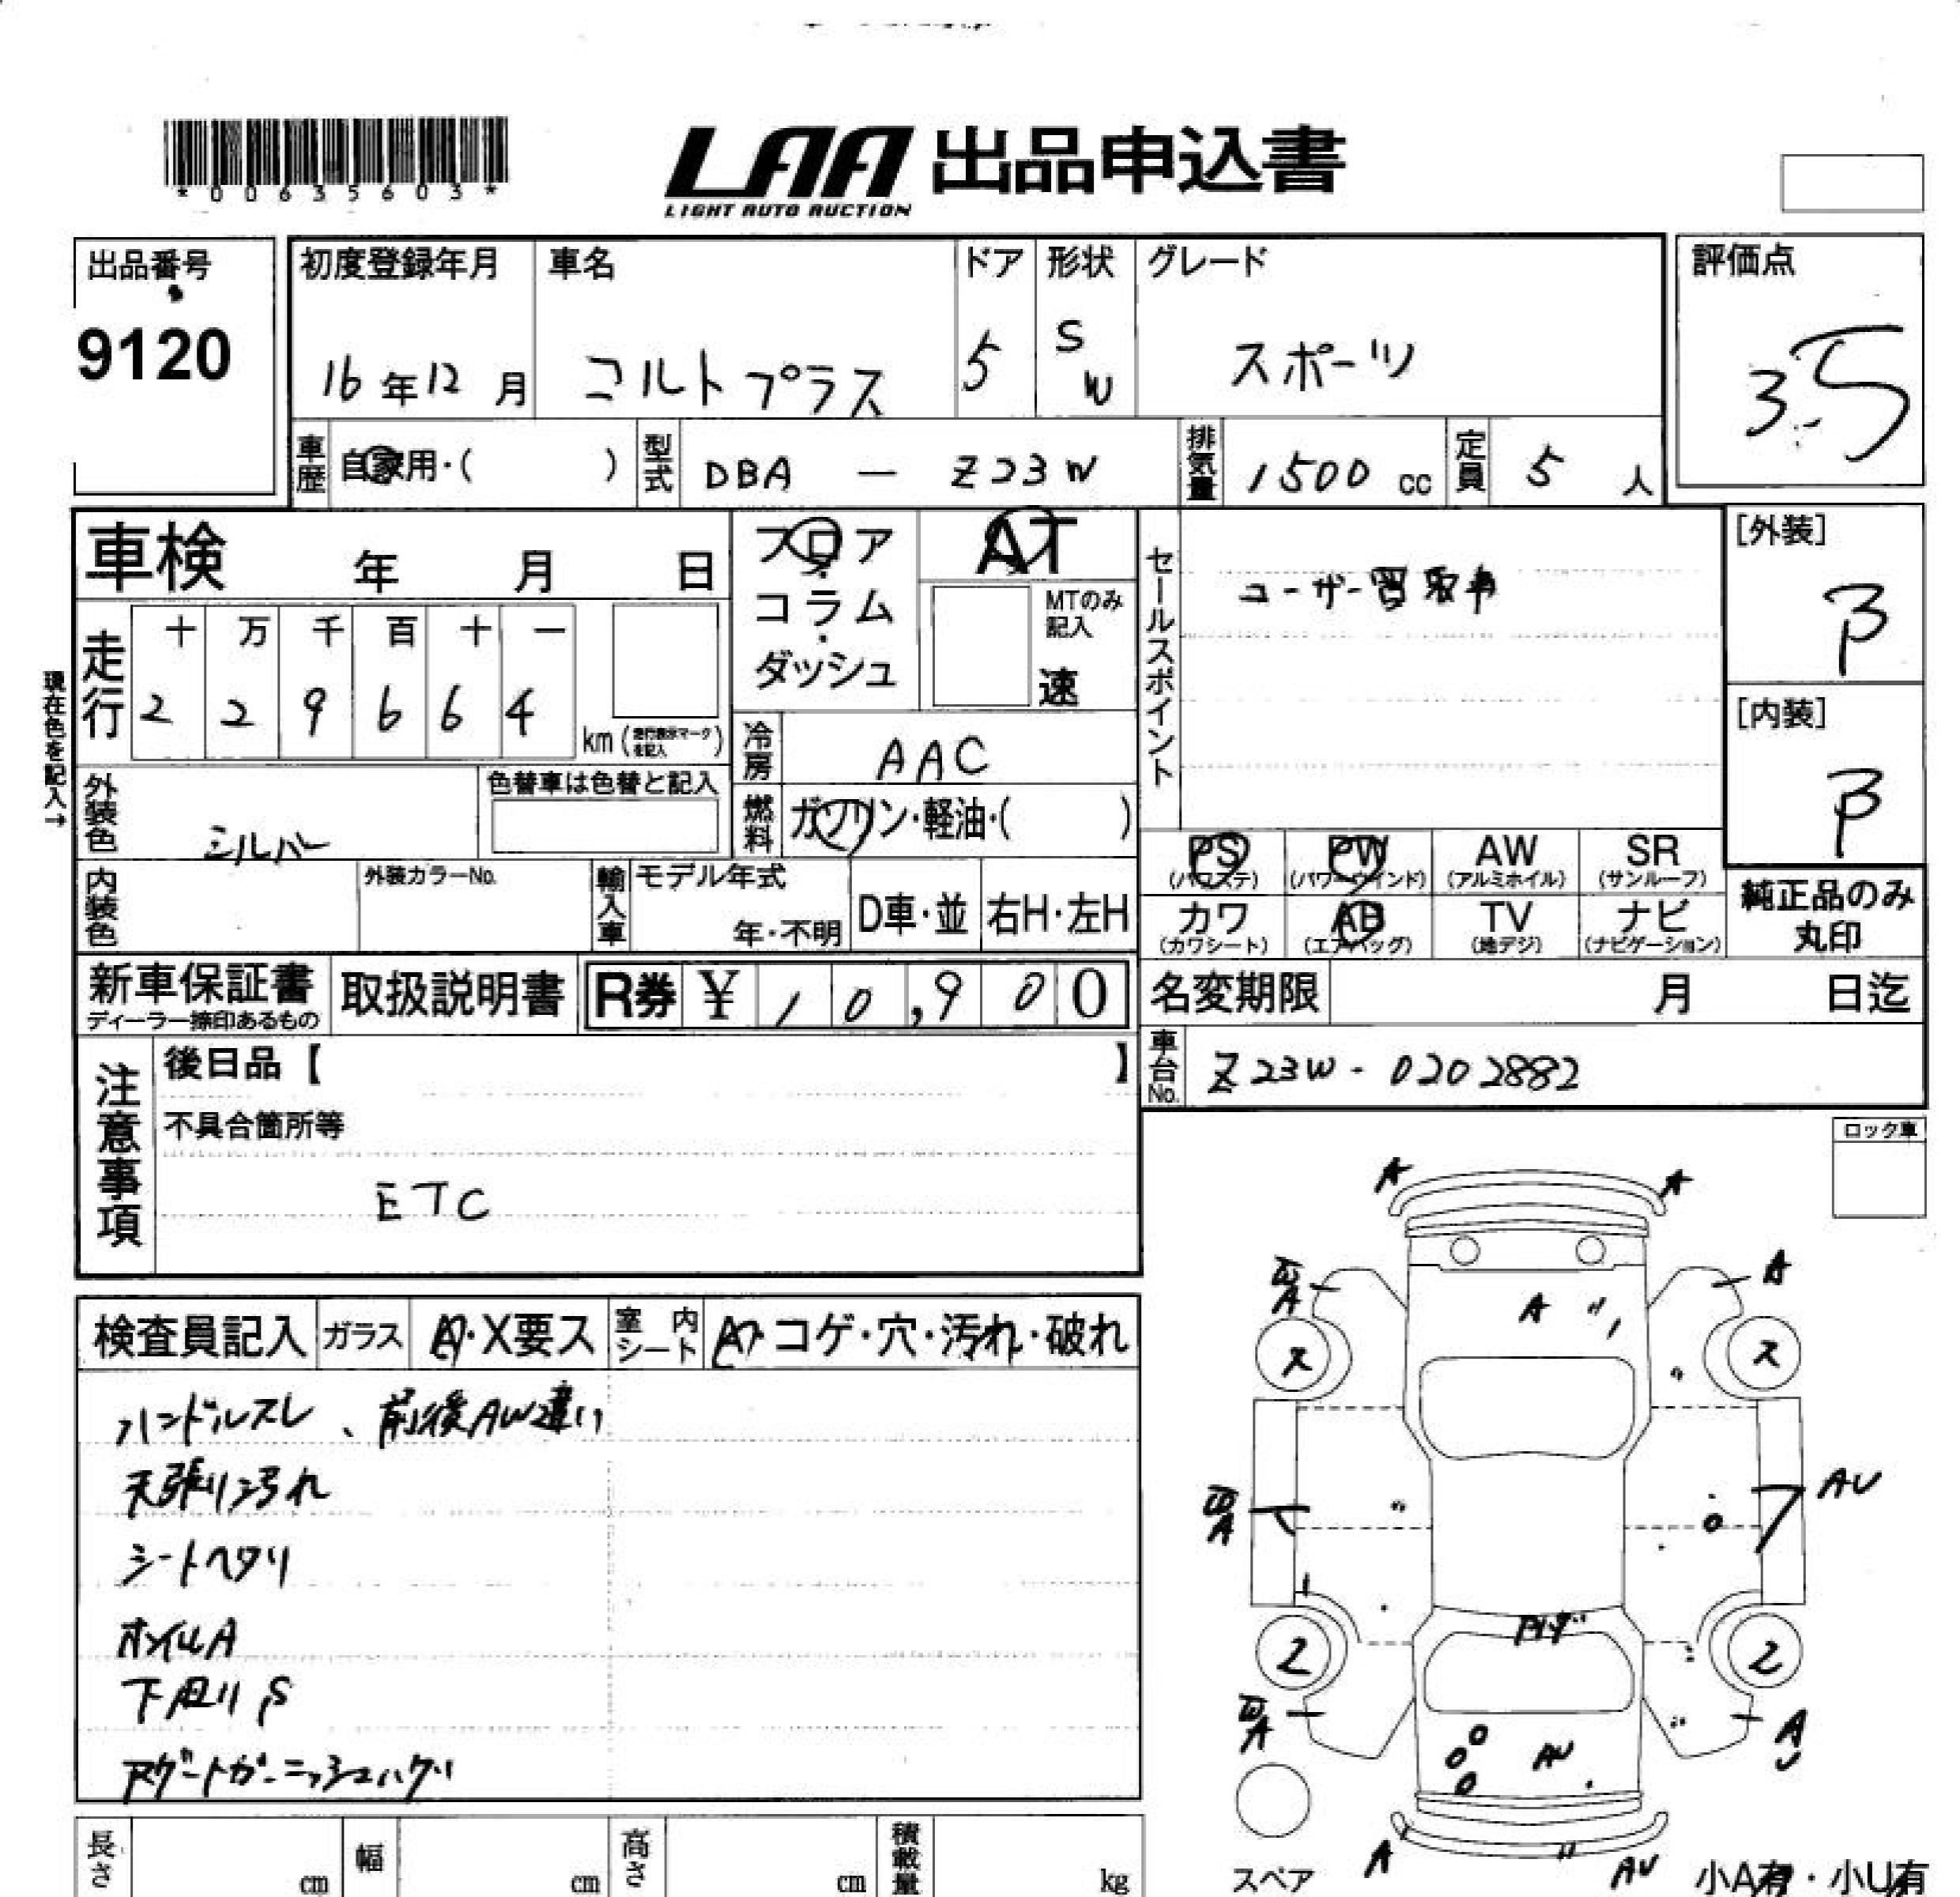 *00635603*
LAA 出品申込書
LIGHT AUTO AUCTION
出品番号
9120
初度登録年月 車名 ドア 形状 グレード 評価点
16年12月 コルトプラス 5 SW スポーツ 3.5
車歴 自家用・( ) 型式 DBA — Z23W 排気量 1500 cc 定員 5 人
車検 年 月 日
フロア
コラム
ダッシュ
AT
MTのみ記入
速
セールスポイント
ユーザー買取車
[外装]
β
[内装]
β
現在色を記入→
走行 十 万 千 百 十 一
2 2 9 6 6 4 km (走行表示マークを記入)
冷房 AAC
燃料 ガソリン・軽油・( )
外装色 シルバー 色替車は色替と記入
内装色 外装カラーNo. 輸入車 モデル年式 年・不明 D車・並 右H・左H
PS (パワステ) PW (パワーウインド) AW (アルミホイル) SR (サンルーフ)
カワ (カワシート) AB (エアバッグ) TV (地デジ) ナビ (ナビゲーション)
純正品のみ
丸印
新車保証書 ディーラー捺印あるもの 取扱説明書 R券 ¥ 10,900
名変期限 月 日迄
車台No. Z23W - 0202882
注意事項
後日品【 】
不具合箇所等
ETC
ロック車
検査員記入 ガラス A・X要ス 室内シート A・コゲ・穴・汚れ・破れ
ハンドルスレ、前後AW違い
天張り汚れ
シートヘタリ
ホイルA
下廻りS
Rゲートガーニッシュハゲ
A A
A A
A
ス ス
A AU
2 2
A AU AU
スペア
A AU
小A有・小U有
長さ cm 幅 cm 高さ cm 積載量 kg